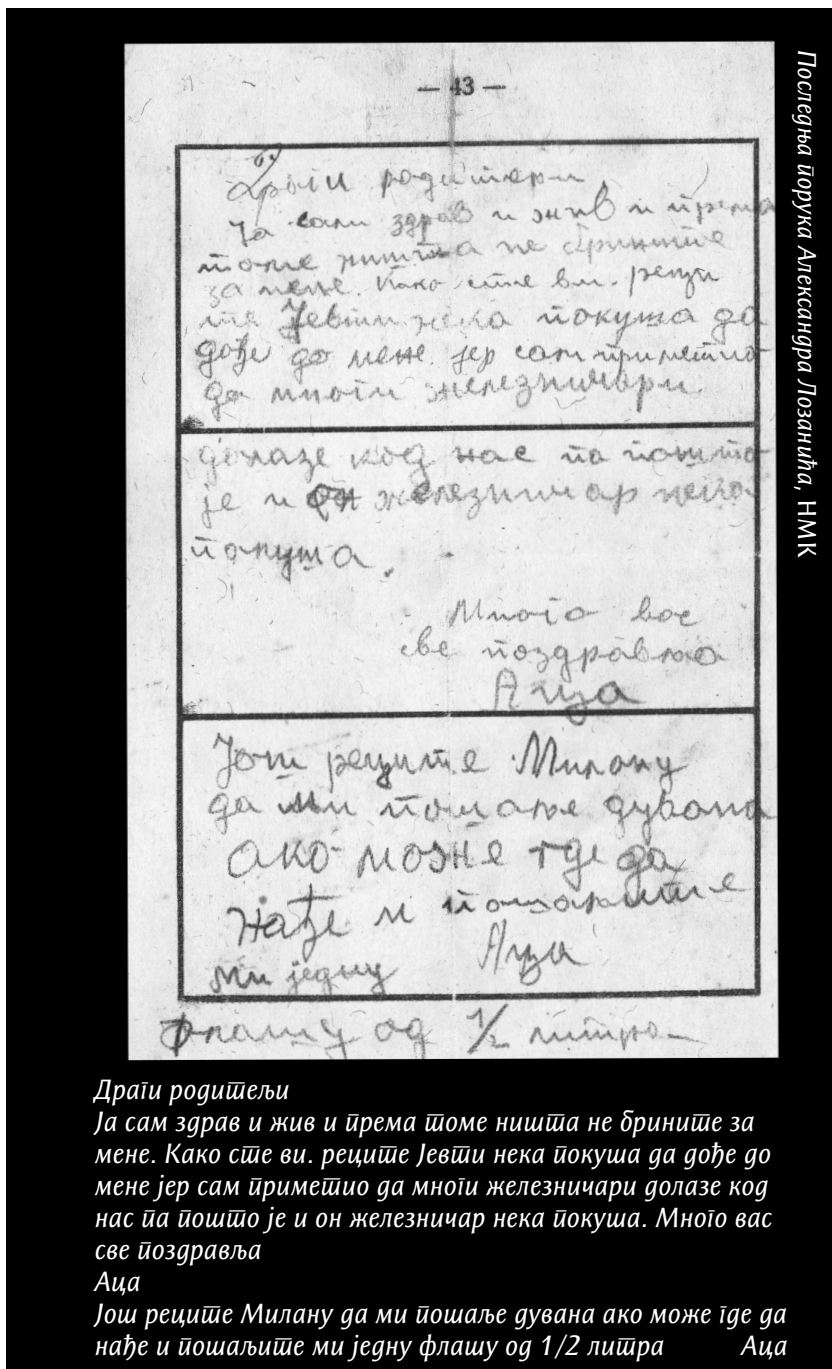 — 43 —
Драги родитељи
Ја сам здрав и жив и према
томе ништа не брините
за мене. Како сте ви. реци
те Јевти нека покуша да
дође до мене јер сам приметио
да многи железничари
долазе код нас па пошто
је и он железничар нека
покуша.
Много вас
све поздравља
Аца
Још реците Милану
да ми пошаље дувана
ако може где да
нађе и пошаљите
ми једну Аца
флашу од 1/2 литра
Последња порука Александра Лозанића, НМК
Драги родитељи
Ја сам здрав и жив и према томе ништа не брините за
мене. Како сте ви. реците Јевти нека покуша да дође до
мене јер сам приметио да многи железничари долазе код
нас па пошто је и он железничар нека покуша. Много вас
све поздравља
Аца
Још реците Милану да ми пошаље дувана ако може где да
нађе и пошаљите ми једну флашу од 1/2 литра Аца